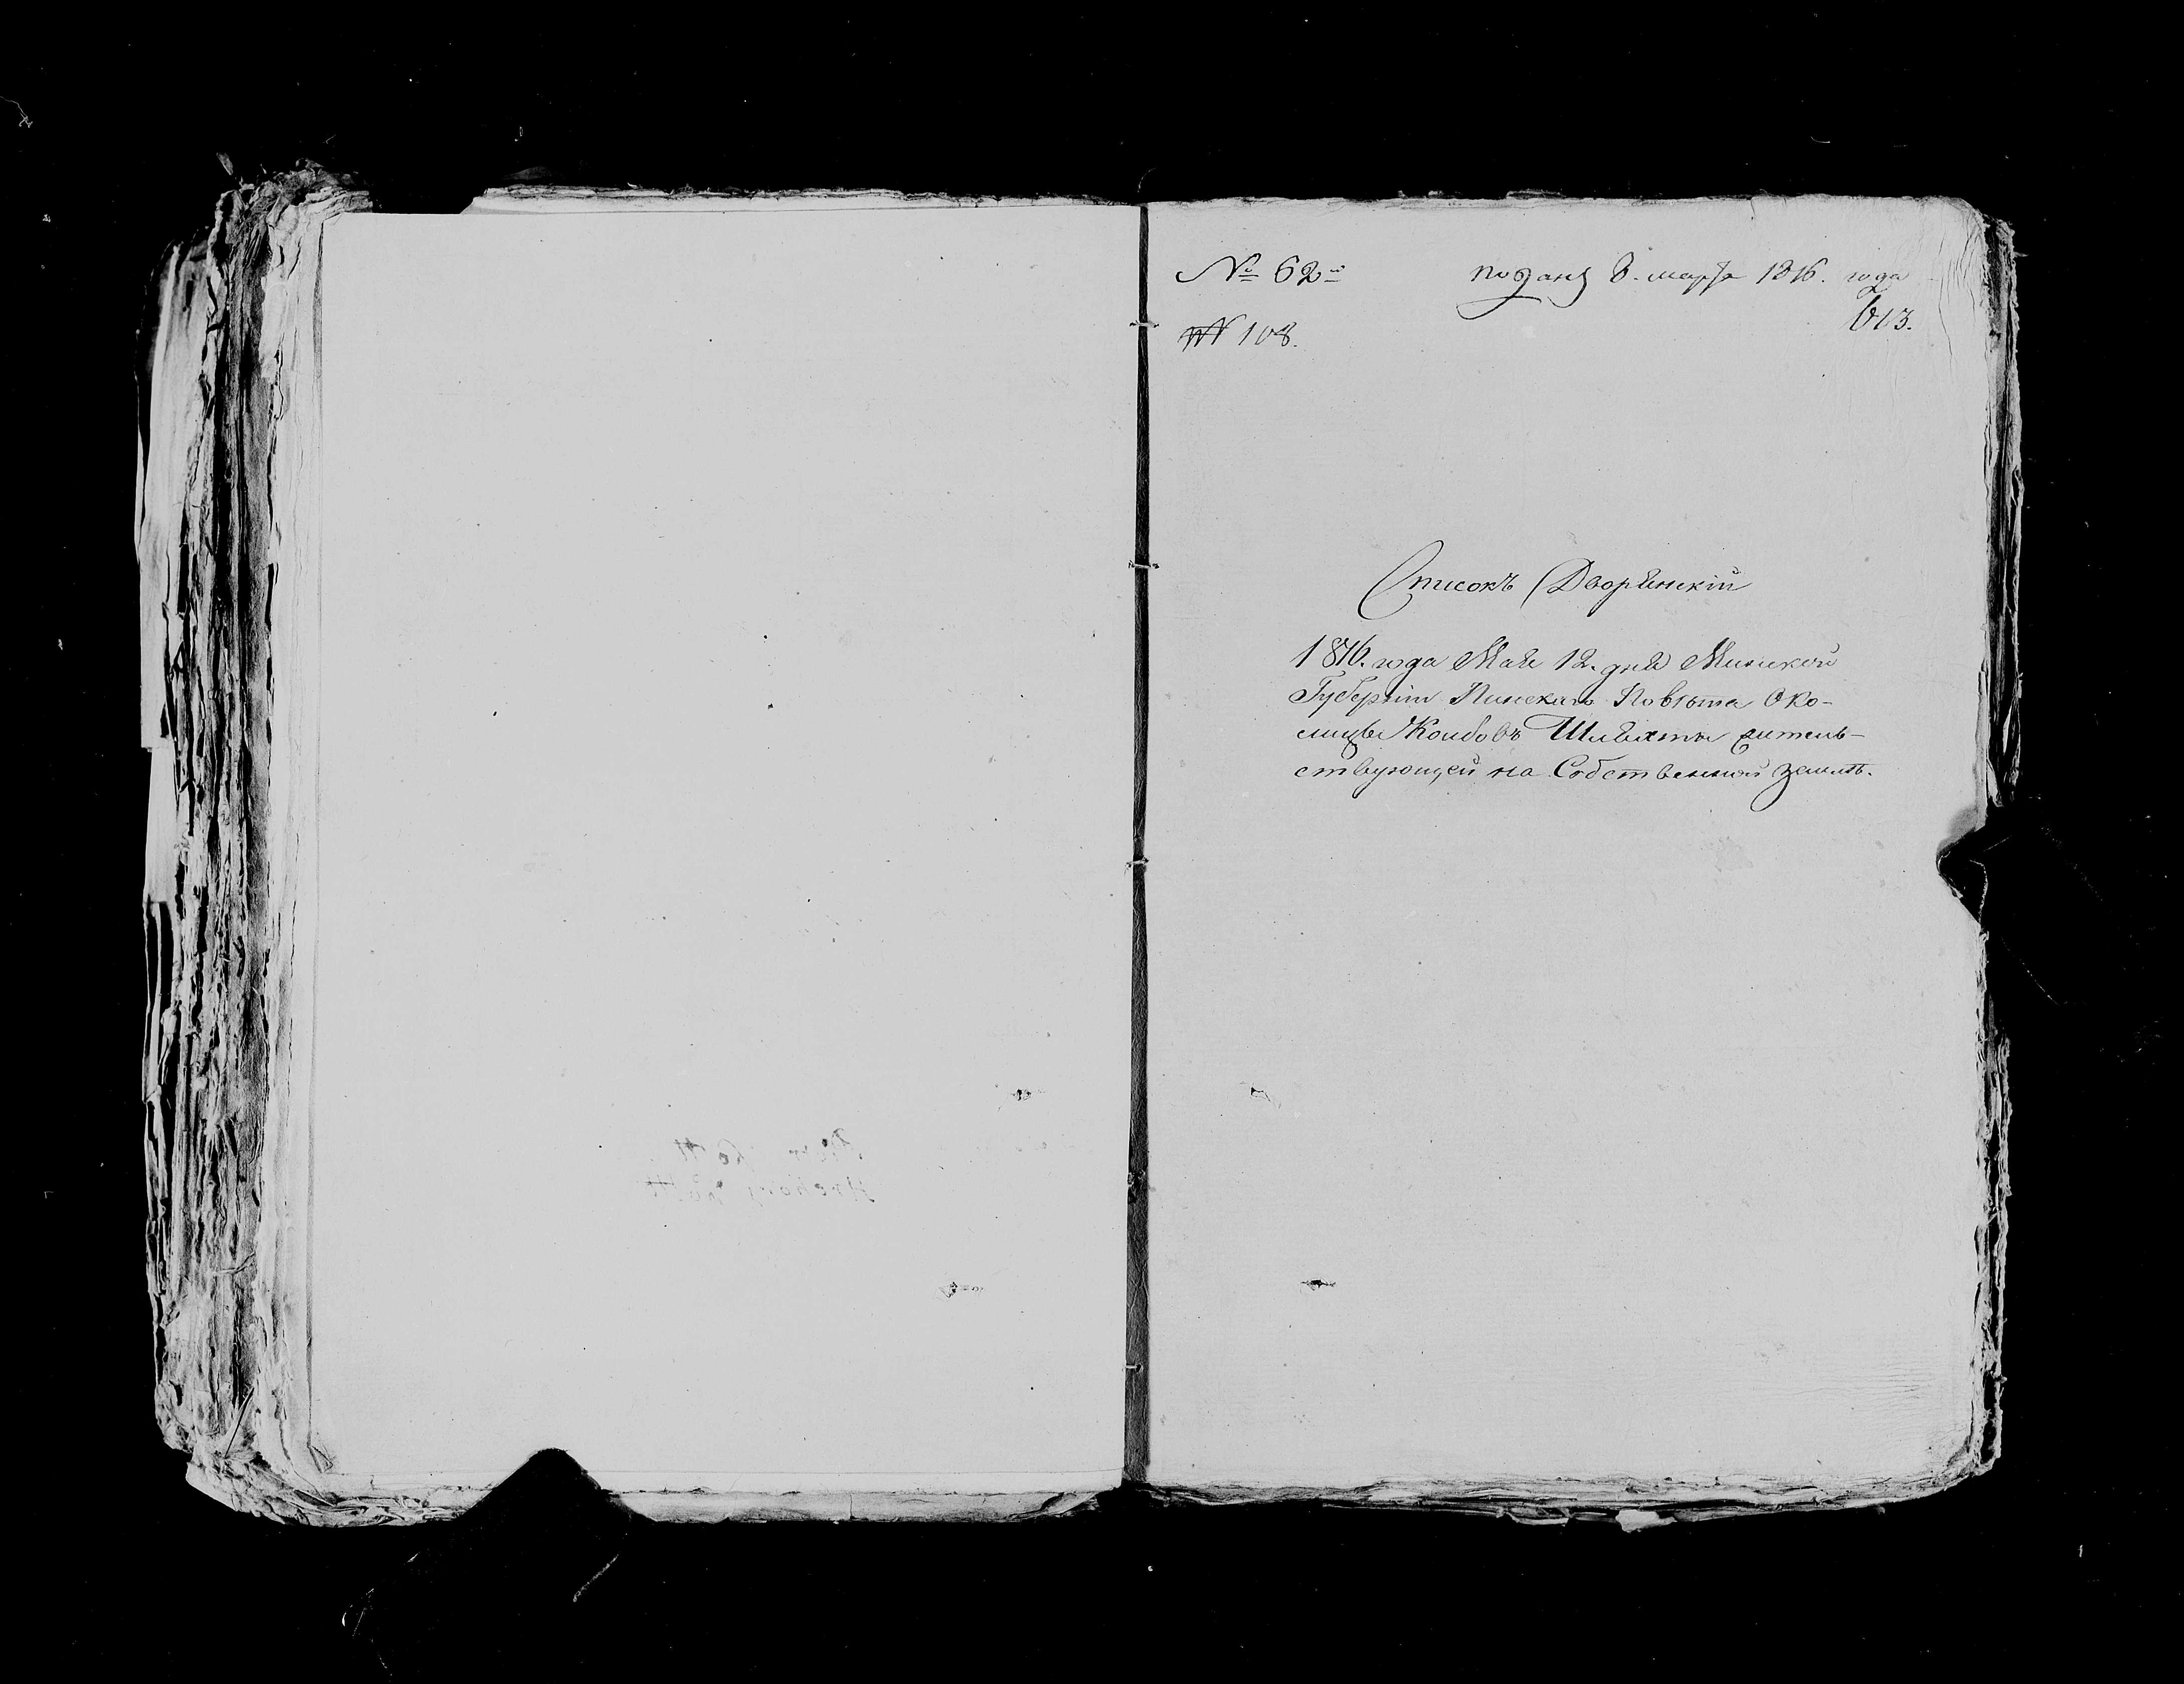 № 62й
поданъ 8. марта 1816. года
613.
№ 108.
Списокъ Дворянскій
1816. года Мая 12. дня Минской
Губерніи Пинскаго Повѣта Око-
лицы Колбовъ Шляхты житель-
ствующей на Собственной землѣ.